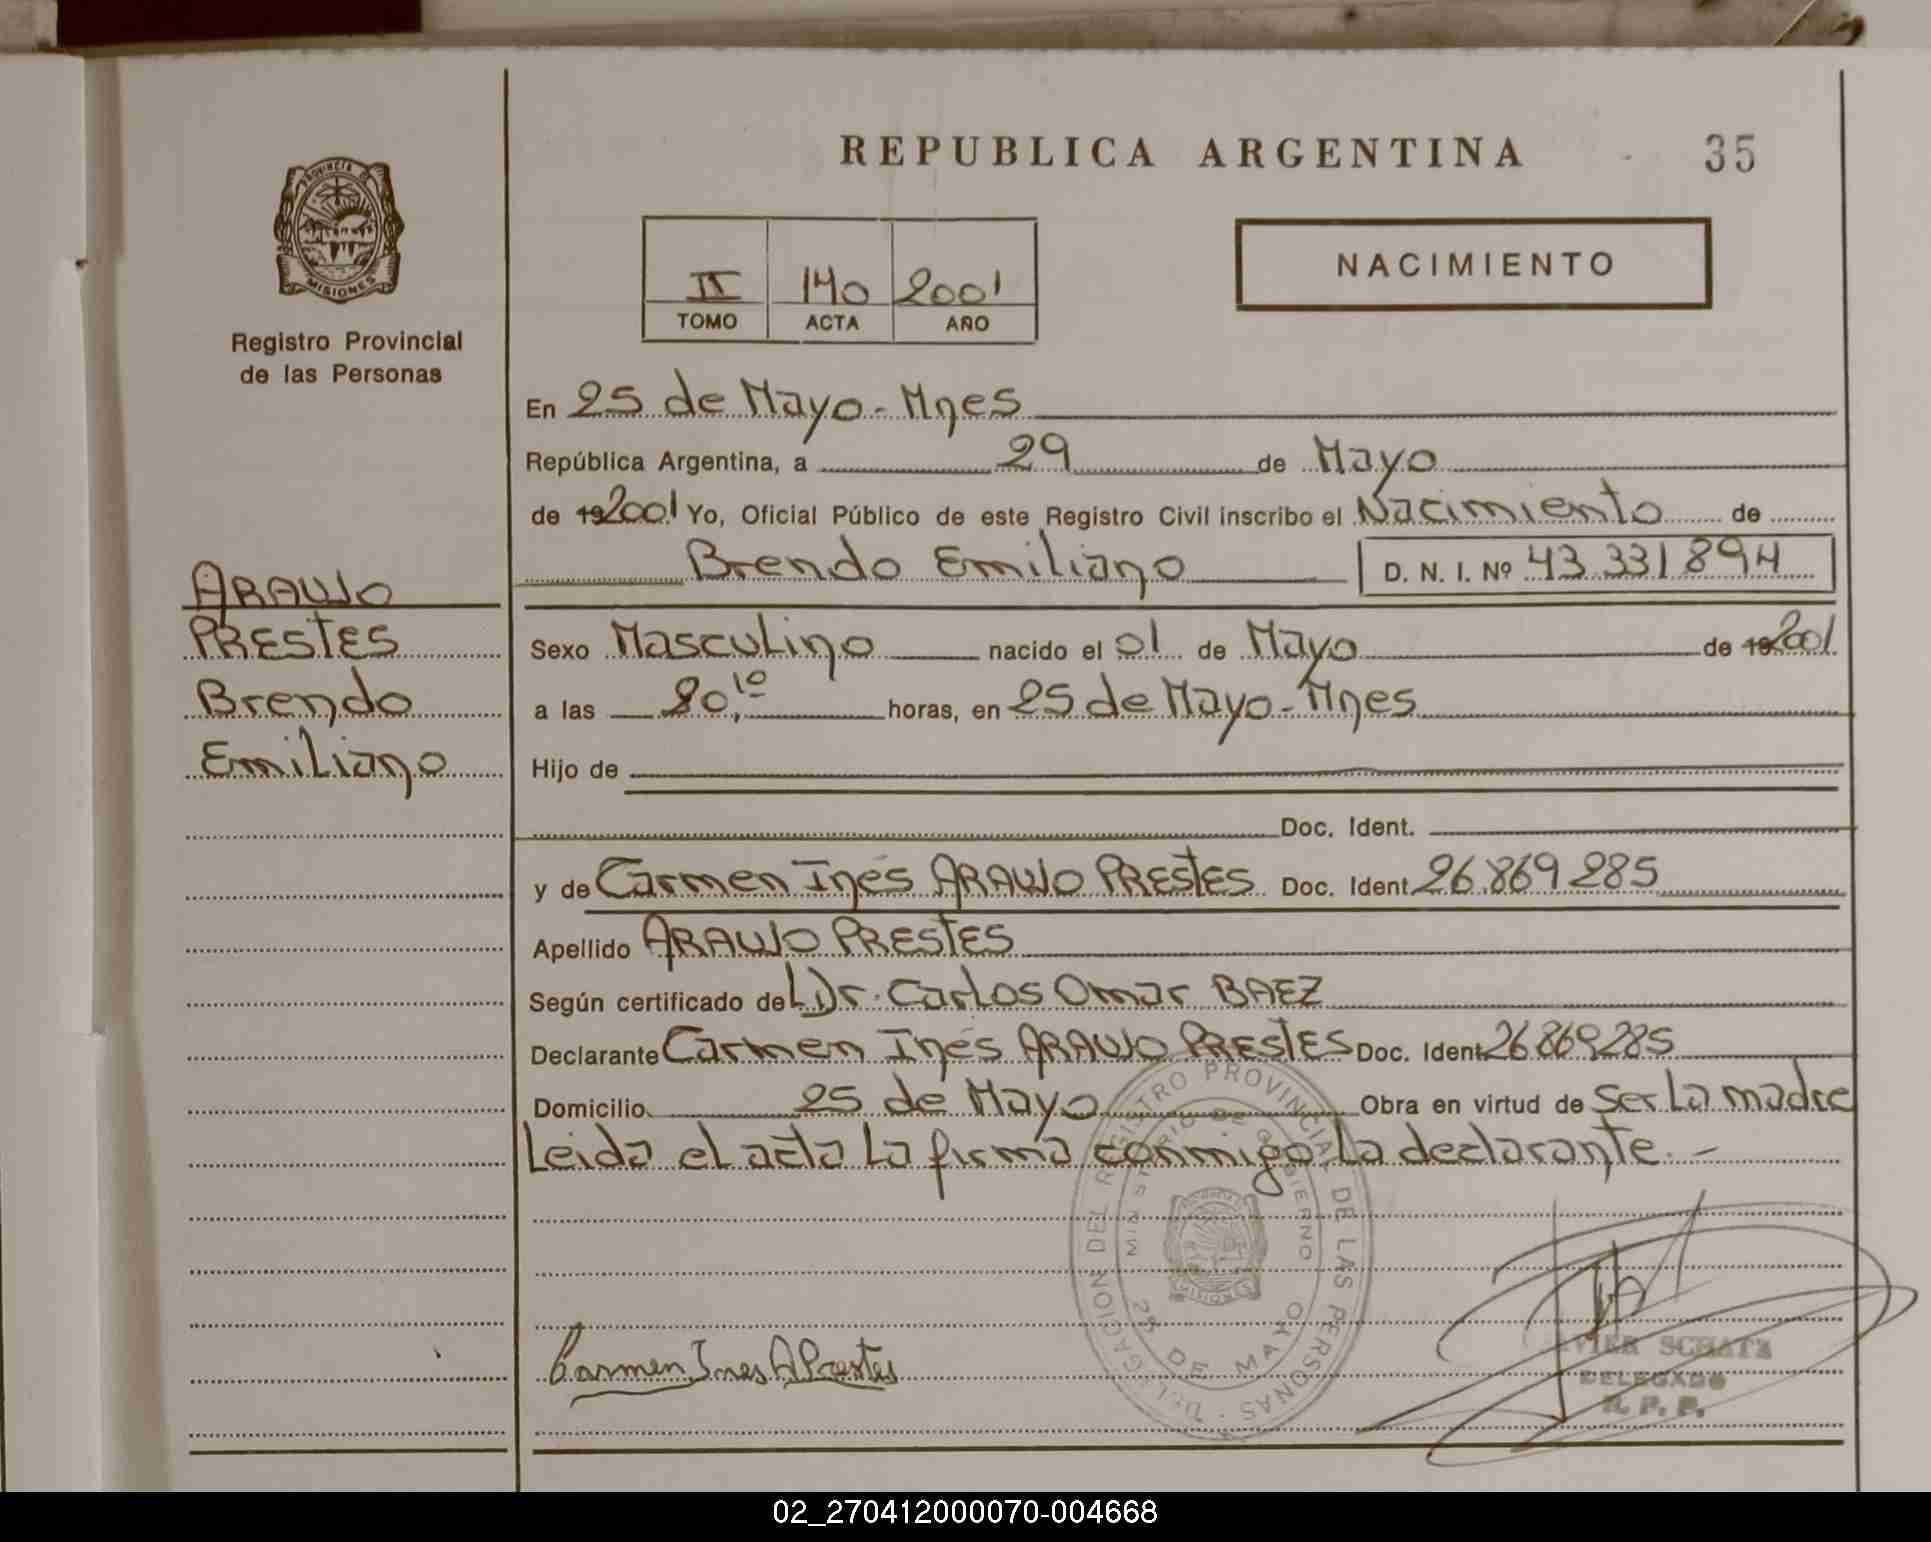 REPUBLICA ARGENTINA
35
PROVINCIA DE
MISIONES
Registro Provincial
de las Personas
II 140 2001
TOMO ACTA AÑO
NACIMIENTO
En 25 de Mayo - Mnes
República Argentina, a 29 de Mayo
de 19 2001 Yo, Oficial Público de este Registro Civil inscribo el Nacimiento de
Brendo Emiliano D. N. I. Nº 43 331 894
ARAUJO
PRESTES
Brendo
Emiliano
Sexo Masculino nacido el 01 de Mayo de 19 2001
a las 20,10 horas, en 25 de Mayo - Mnes
Hijo de
Doc. Ident.
y de Carmen Inés ARAUJO PRESTES Doc. Ident. 26.869 285
Apellido ARAUJO PRESTES
Según certificado del Dr. Carlos Omar BAEZ
Declarante Carmen Inés ARAUJO PRESTES Doc. Ident 26 869 285
Domicilio 25 de Mayo Obra en virtud de ser la madre
Leida el acta la firma conmigo la declarante. -
DELEGACION DEL REGISTRO PROVINCIAL DE LAS PERSONAS
MINISTERIO DE GOBIERNO
MISIONES
25 DE MAYO
Carmen Ines A Prestes
SCHATZ
DELEGADO
R. P. P.
02_270412000070-004668